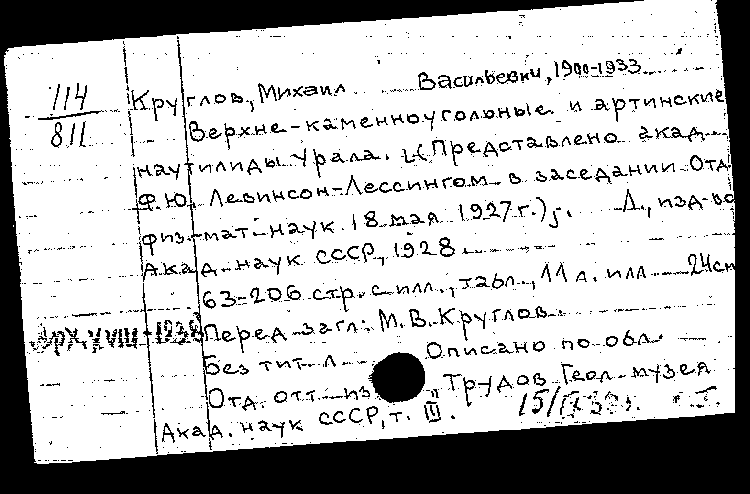 114
811
Круглов, Михаил Васильевич, 1900-1933.
Верхне-каменноугольные и артинские
наутилиды Урала. (Представлено акад.
Ф.Ю. Левинсон-Лессингом в заседании Отд.
физ-мат-наук 18 мая 1927 г.); Л., изд-во
Акад. наук СССР, 1928.
63-206 стр. с илл., табл., 11 л. илл 24см
Перед загл: М.В. Круглов.
Без тит. л. Описано по обл.
Отд. отт. из "Трудов Геол. музея
Акад. наук СССР, т. III.